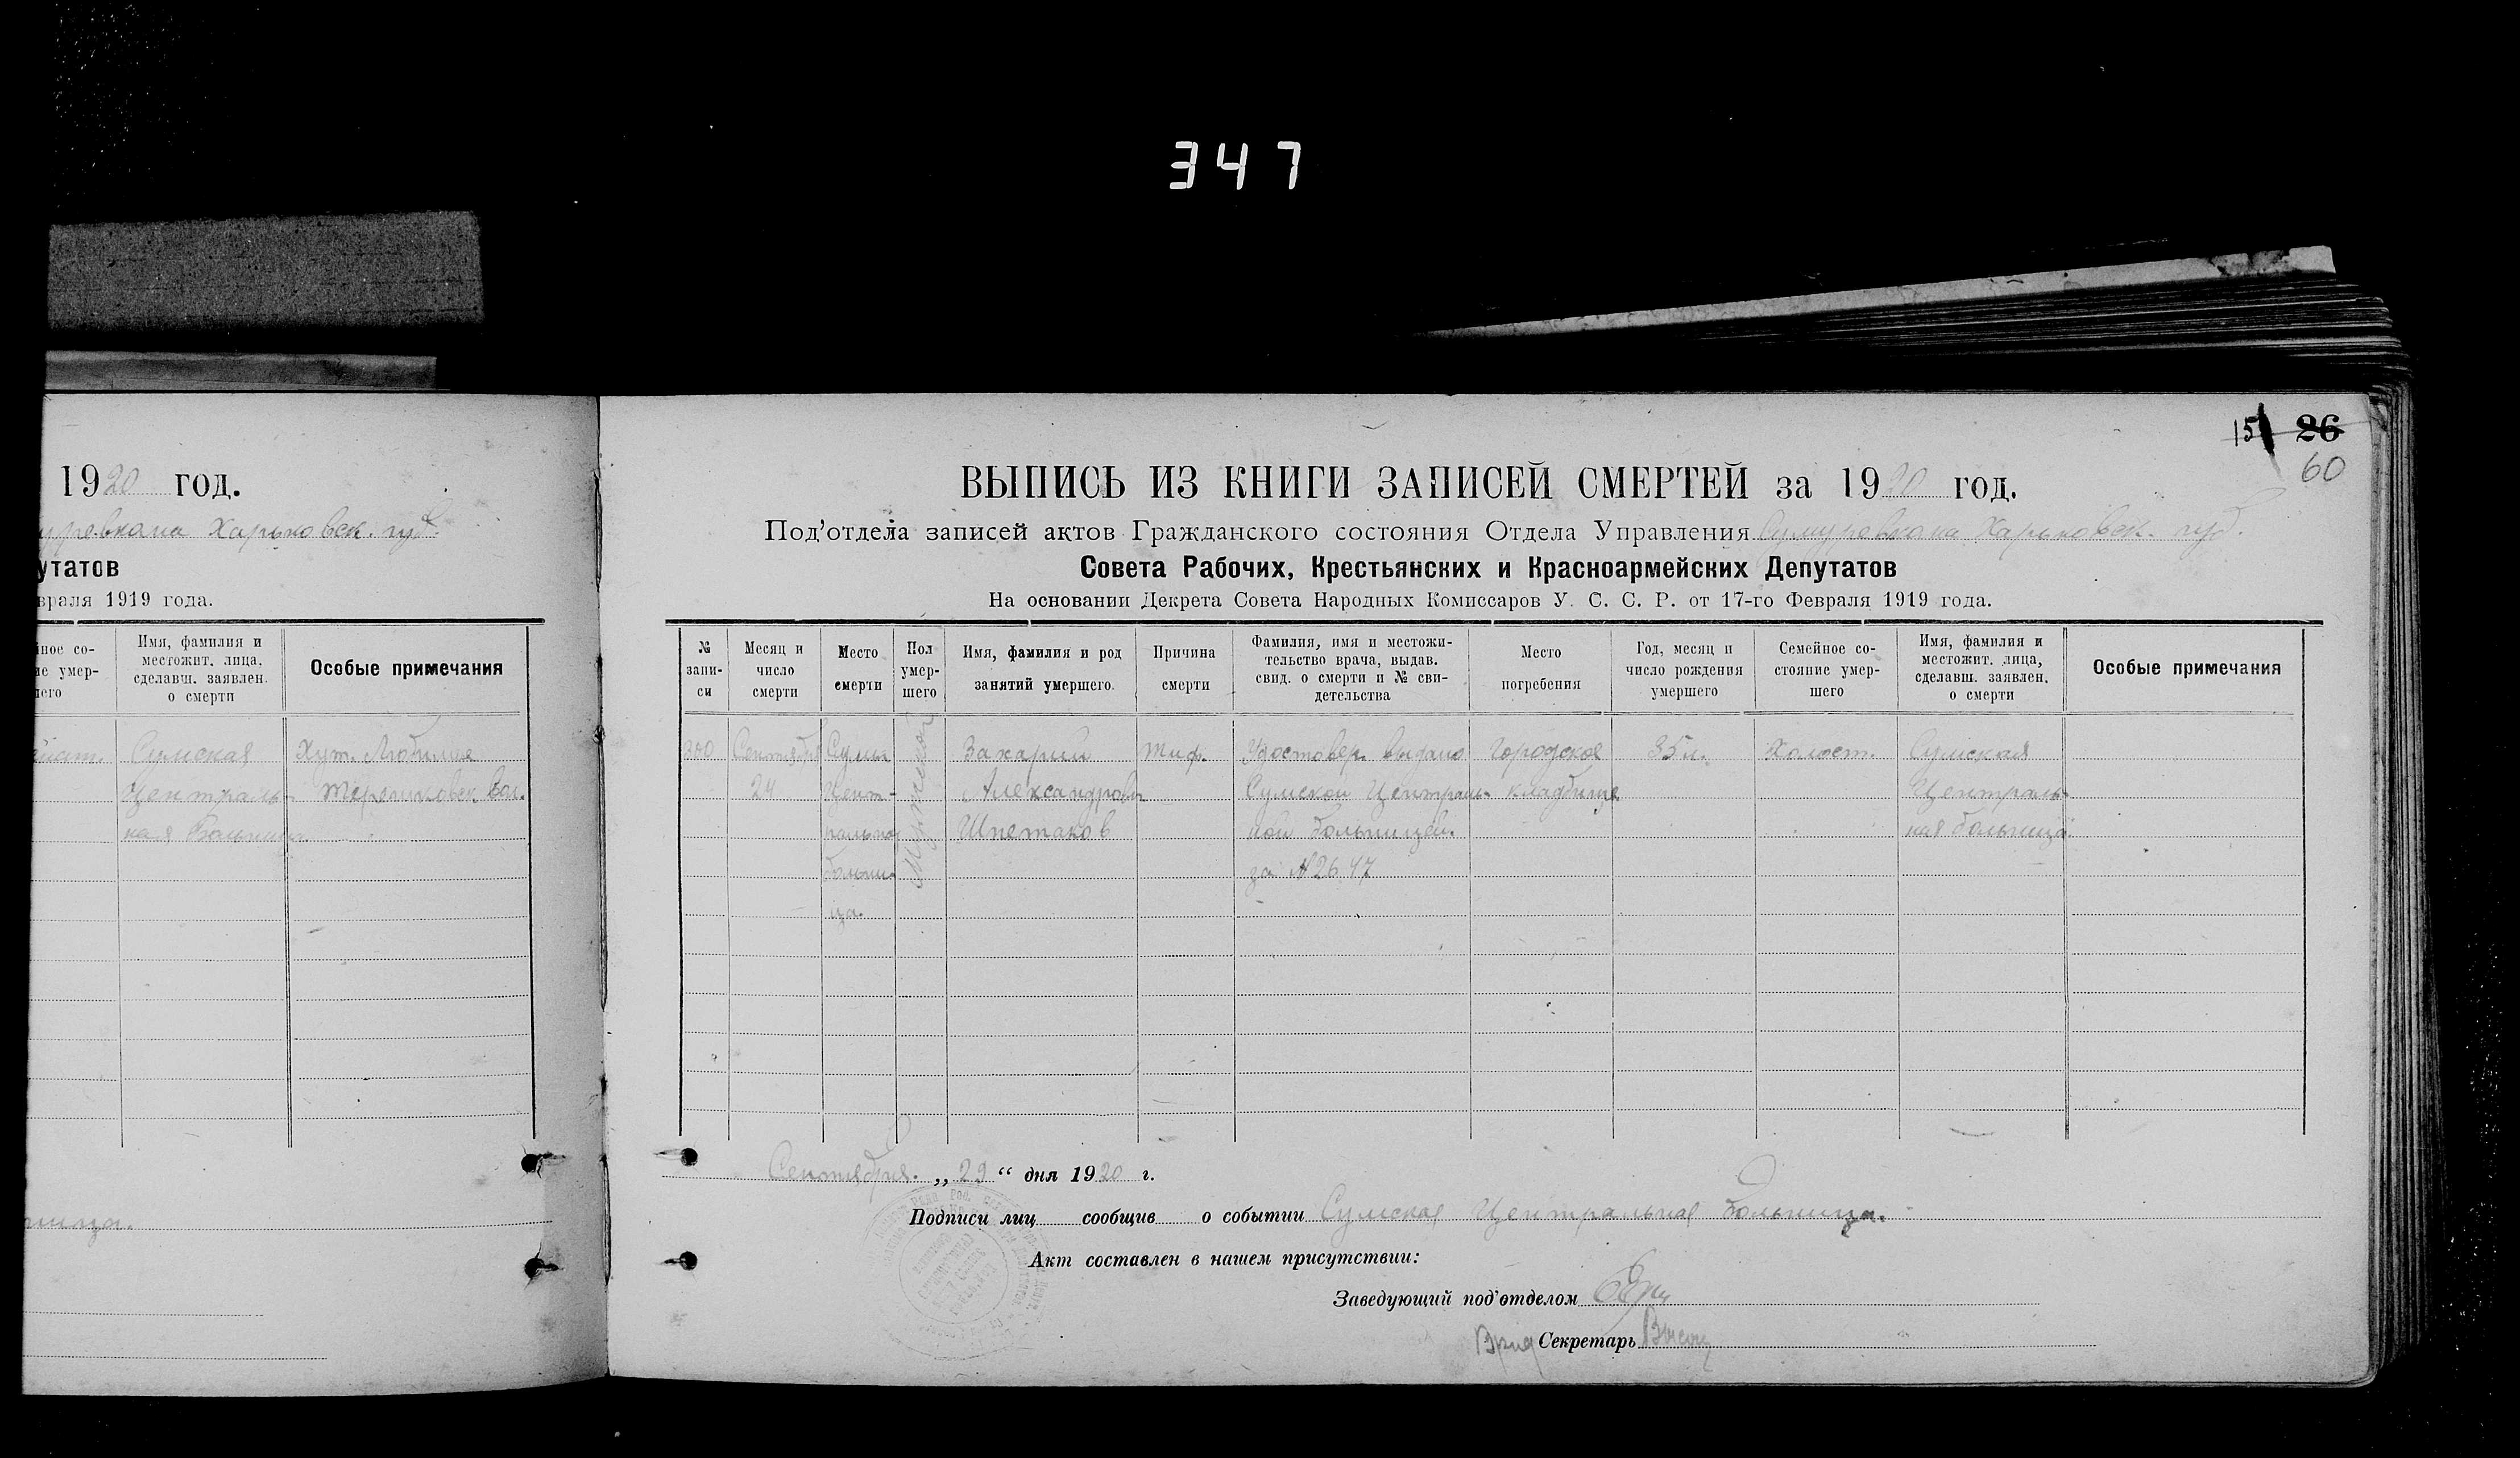 347
1920 год.
уревкома Харьковск. губ.
утатов
враля 1919 года.
йное со-
ие умер-
шего
Имя, фамилия и
местожит. лица,
сделавш. заявлен.
о смерти
Особые примечания
Сумская
Централь-
ная Больница.
Хут. Любимая
Терешковск. Вол.
ница.
151 26
60
ВЫПИСЬ ИЗ КНИГИ ЗАПИСЕЙ СМЕРТЕЙ за 1920 год.
Под'отдела записей актов Гражданского состояния Отдела Управления Сумуревкома Харьковск. губ.
Совета Рабочих, Крестьянских и Красноармейских Депутатов
На основании Декрета Совета Народных Комиссаров У. С. С. Р. от 17-го Февраля 1919 года.
№
запи-
си
Месяц и
число
смерти
Место
смерти
Пол
умер-
шего
Имя, фамилия и род
занятий умершего.
Причина
смерти
Фамилия, имя и местожи-
тельство врача, выдав.
свид. о смерти и № сви-
детельства
Место
погребения
Год, месяц и
число рождения
умершего
Семейное со-
стояние умер-
шего
Имя, фамилия и
местожит. лица,
сделавш. заявлен.
о смерти
Особые примечания
300
Сентября
24
Сумы
Цент-
ральная
больни-
ца.
Мужской
Захарий
Александров
Шпетаков
Тиф.
Удостовер. выдано
Сумской Централь-
ной больницей.
за №2647
Городское
кладбище
35 л.
Холост.
Сумская
Централь-
ная больница.
Сентября. „29“ дня 1920 г.
Подписи лиц сообщив о событии Сумская Центральная больница.
Акт составлен в нашем присутствии:
Заведующий под'отделом
Врид Секретарь